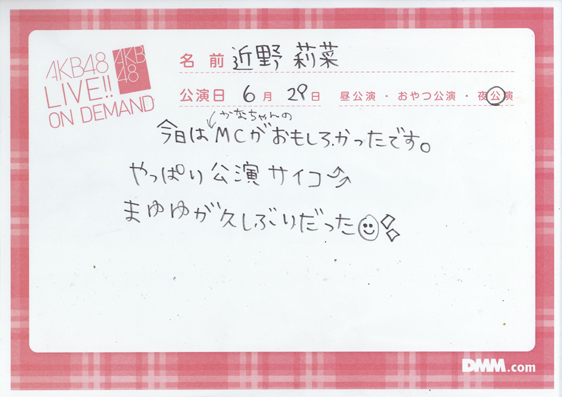 AKB48
LIVE!!
ON DEMAND
AKB
48
名 前 近野 莉菜
公演日 6 月 29 日 昼公演・おやつ公演・夜公演
かなちゃんの
今日はMCがおもしろかったです。
やっぱり公演サイコー
まゆゆが久しぶりだった
DMM.com